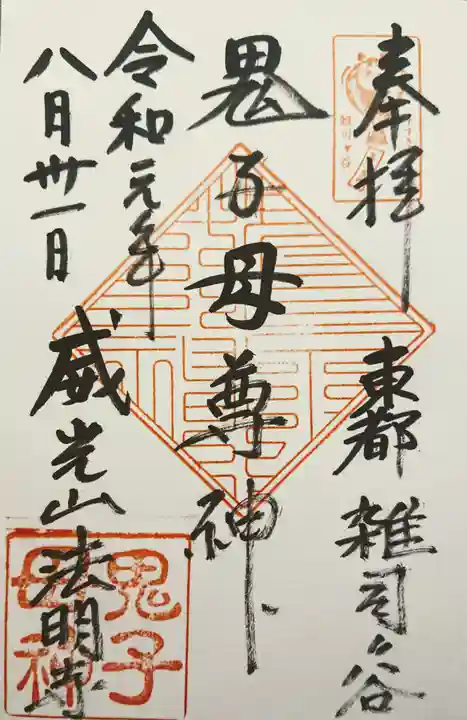 奉拝
東都 雑司ヶ谷
鬼子母尊神
令和元年
八月卅一日
威光山法明寺
鬼子
母神